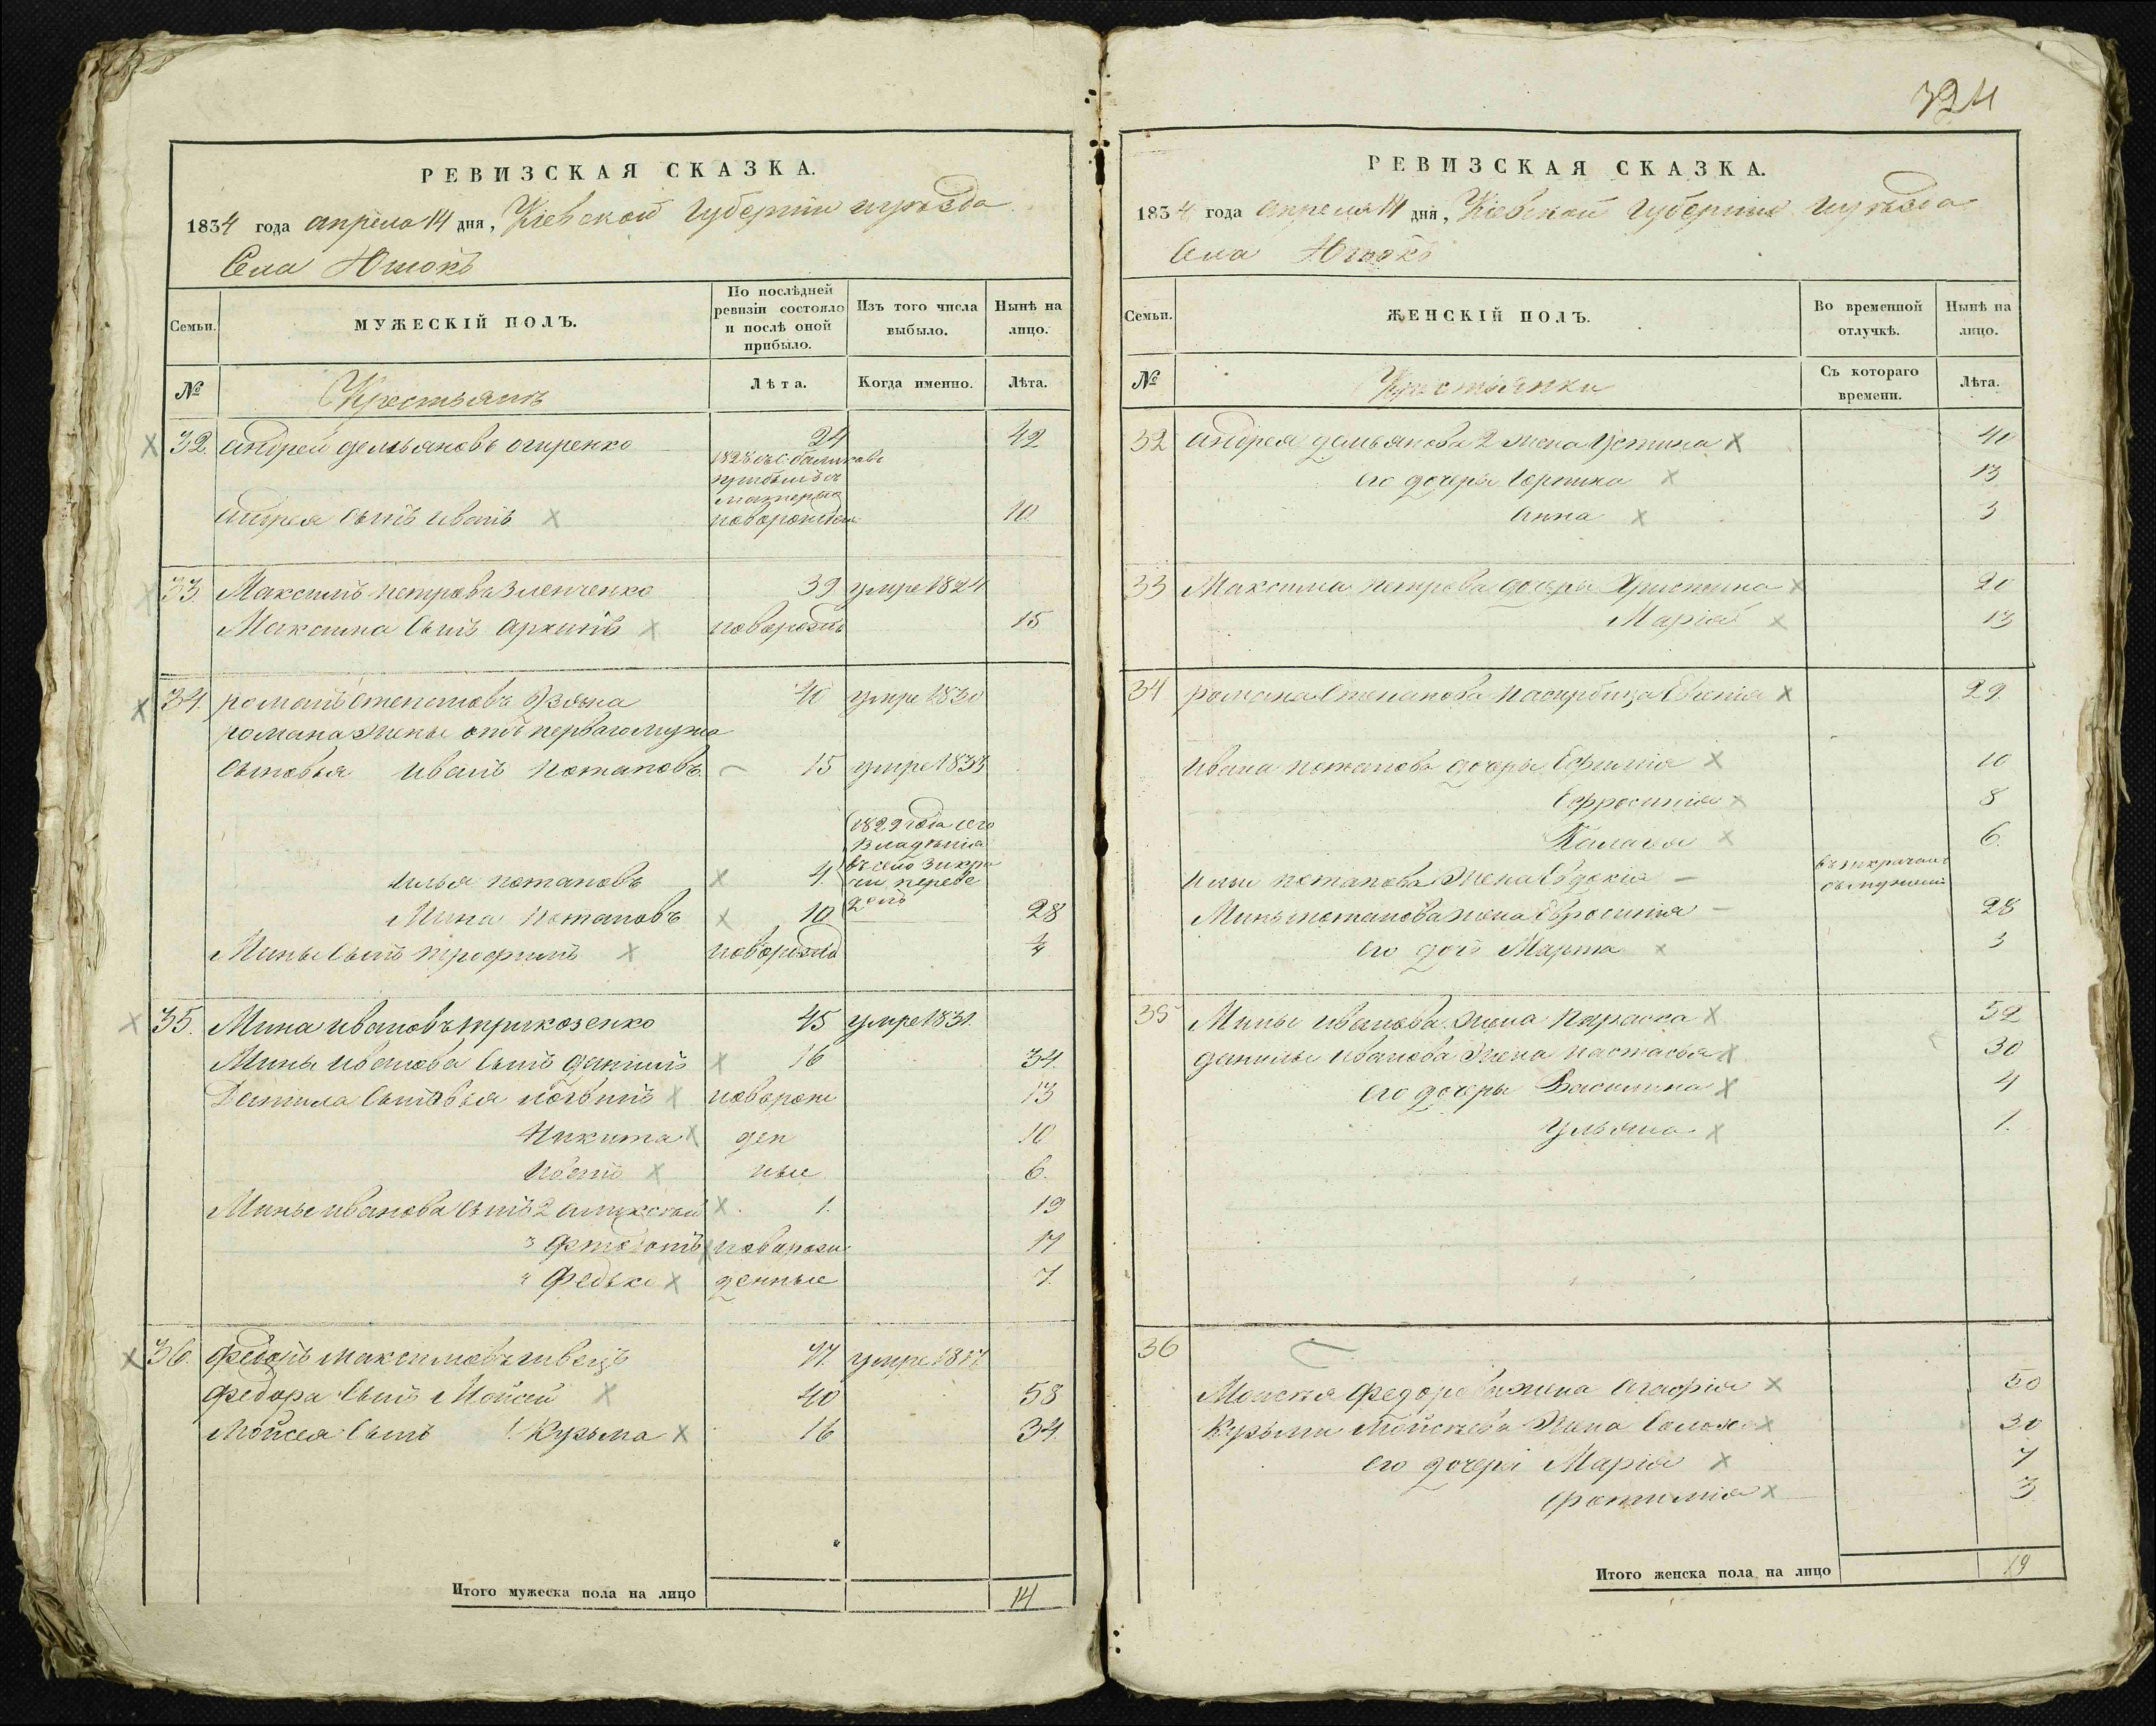 РЕВИЗСКАЯ СКАЗКА.
1834 года апреля 14 дня, Кіевской Губерніи и уѣзда
Села Юшокъ
Семьи.
МУЖЕСКІЙ ПОЛЪ.
По послѣдней ревизіи состояло и послѣ оной прибыло.
Изъ того числа выбыло.
Нынѣ на лицо.
№
Крестьянъ
Лѣта.
Когда именно.
Лѣта.
32. андрей демьяновъ огиренко 24 42
прибылъ съ
матерью
андрея сынъ иванъ новорожден 10.
33. Максимъ петровъ 39 умре 1824
Максима сынъ архипъ новорожд 15
34. романъ степановъ 40 умре 1830
романа жены отъ перваго мужа
сыновья иванъ потаповъ 15 умре 1833
1829 года сего
владѣнія
въ село
переве
денъ
илья потаповъ 4.
Мина потаповъ 10 28
Мины сынъ трофимъ новорожд
35. Мина ивановъ трикозенко 45 умре 1831.
Мины иванова сынъ данилъ 16 34.
Данила сыновья логвинъ новорож 13
Никита ден 10
ные 6.
Мины иванова сынъ 2 1. 19
3 новорож 17
4 Федько денные 7.
36. федоръ максимовъ швецъ 77. умре 1817
федора сынъ Мойсей 40 58
Мойсея сынъ 1 Кузьма 16 34.
Итого мужеска пола на лицо 14
324
РЕВИЗСКАЯ СКАЗКА.
1834 года апреля 14 дня, Кіевской Губерніи и уѣзда
Села Юшокъ
Семьи.
ЖЕНСКІЙ ПОЛЪ.
Во временной отлучкѣ.
Нынѣ на лицо.
№
Крестьянки
Съ котораго времени.
Лѣта.
32 андрея демьянова 2 жена Устина 40
его дочери 13
анна 3
33 Максима петрова дочери Христина 20
Марія 13
34 романа степанова Евгенія 29.
ивана потапова дочери Ефимія 10
Ефросинія 8
Палагея 6.
ильи потапова жена Евдокія
съ мужемъ
Мины потапова жена Ефросинія 28
его дочь Марта 3
35 Мины иванова жена параска 52
данилы иванова жена настасья 30
его дочери Василина 4
ульяна 1.
36
Мойсея федорова жена агафія 50
Кузьми Мойсеева жена 30
его дочери Марія 7
3
Итого женска пола на лицо 19